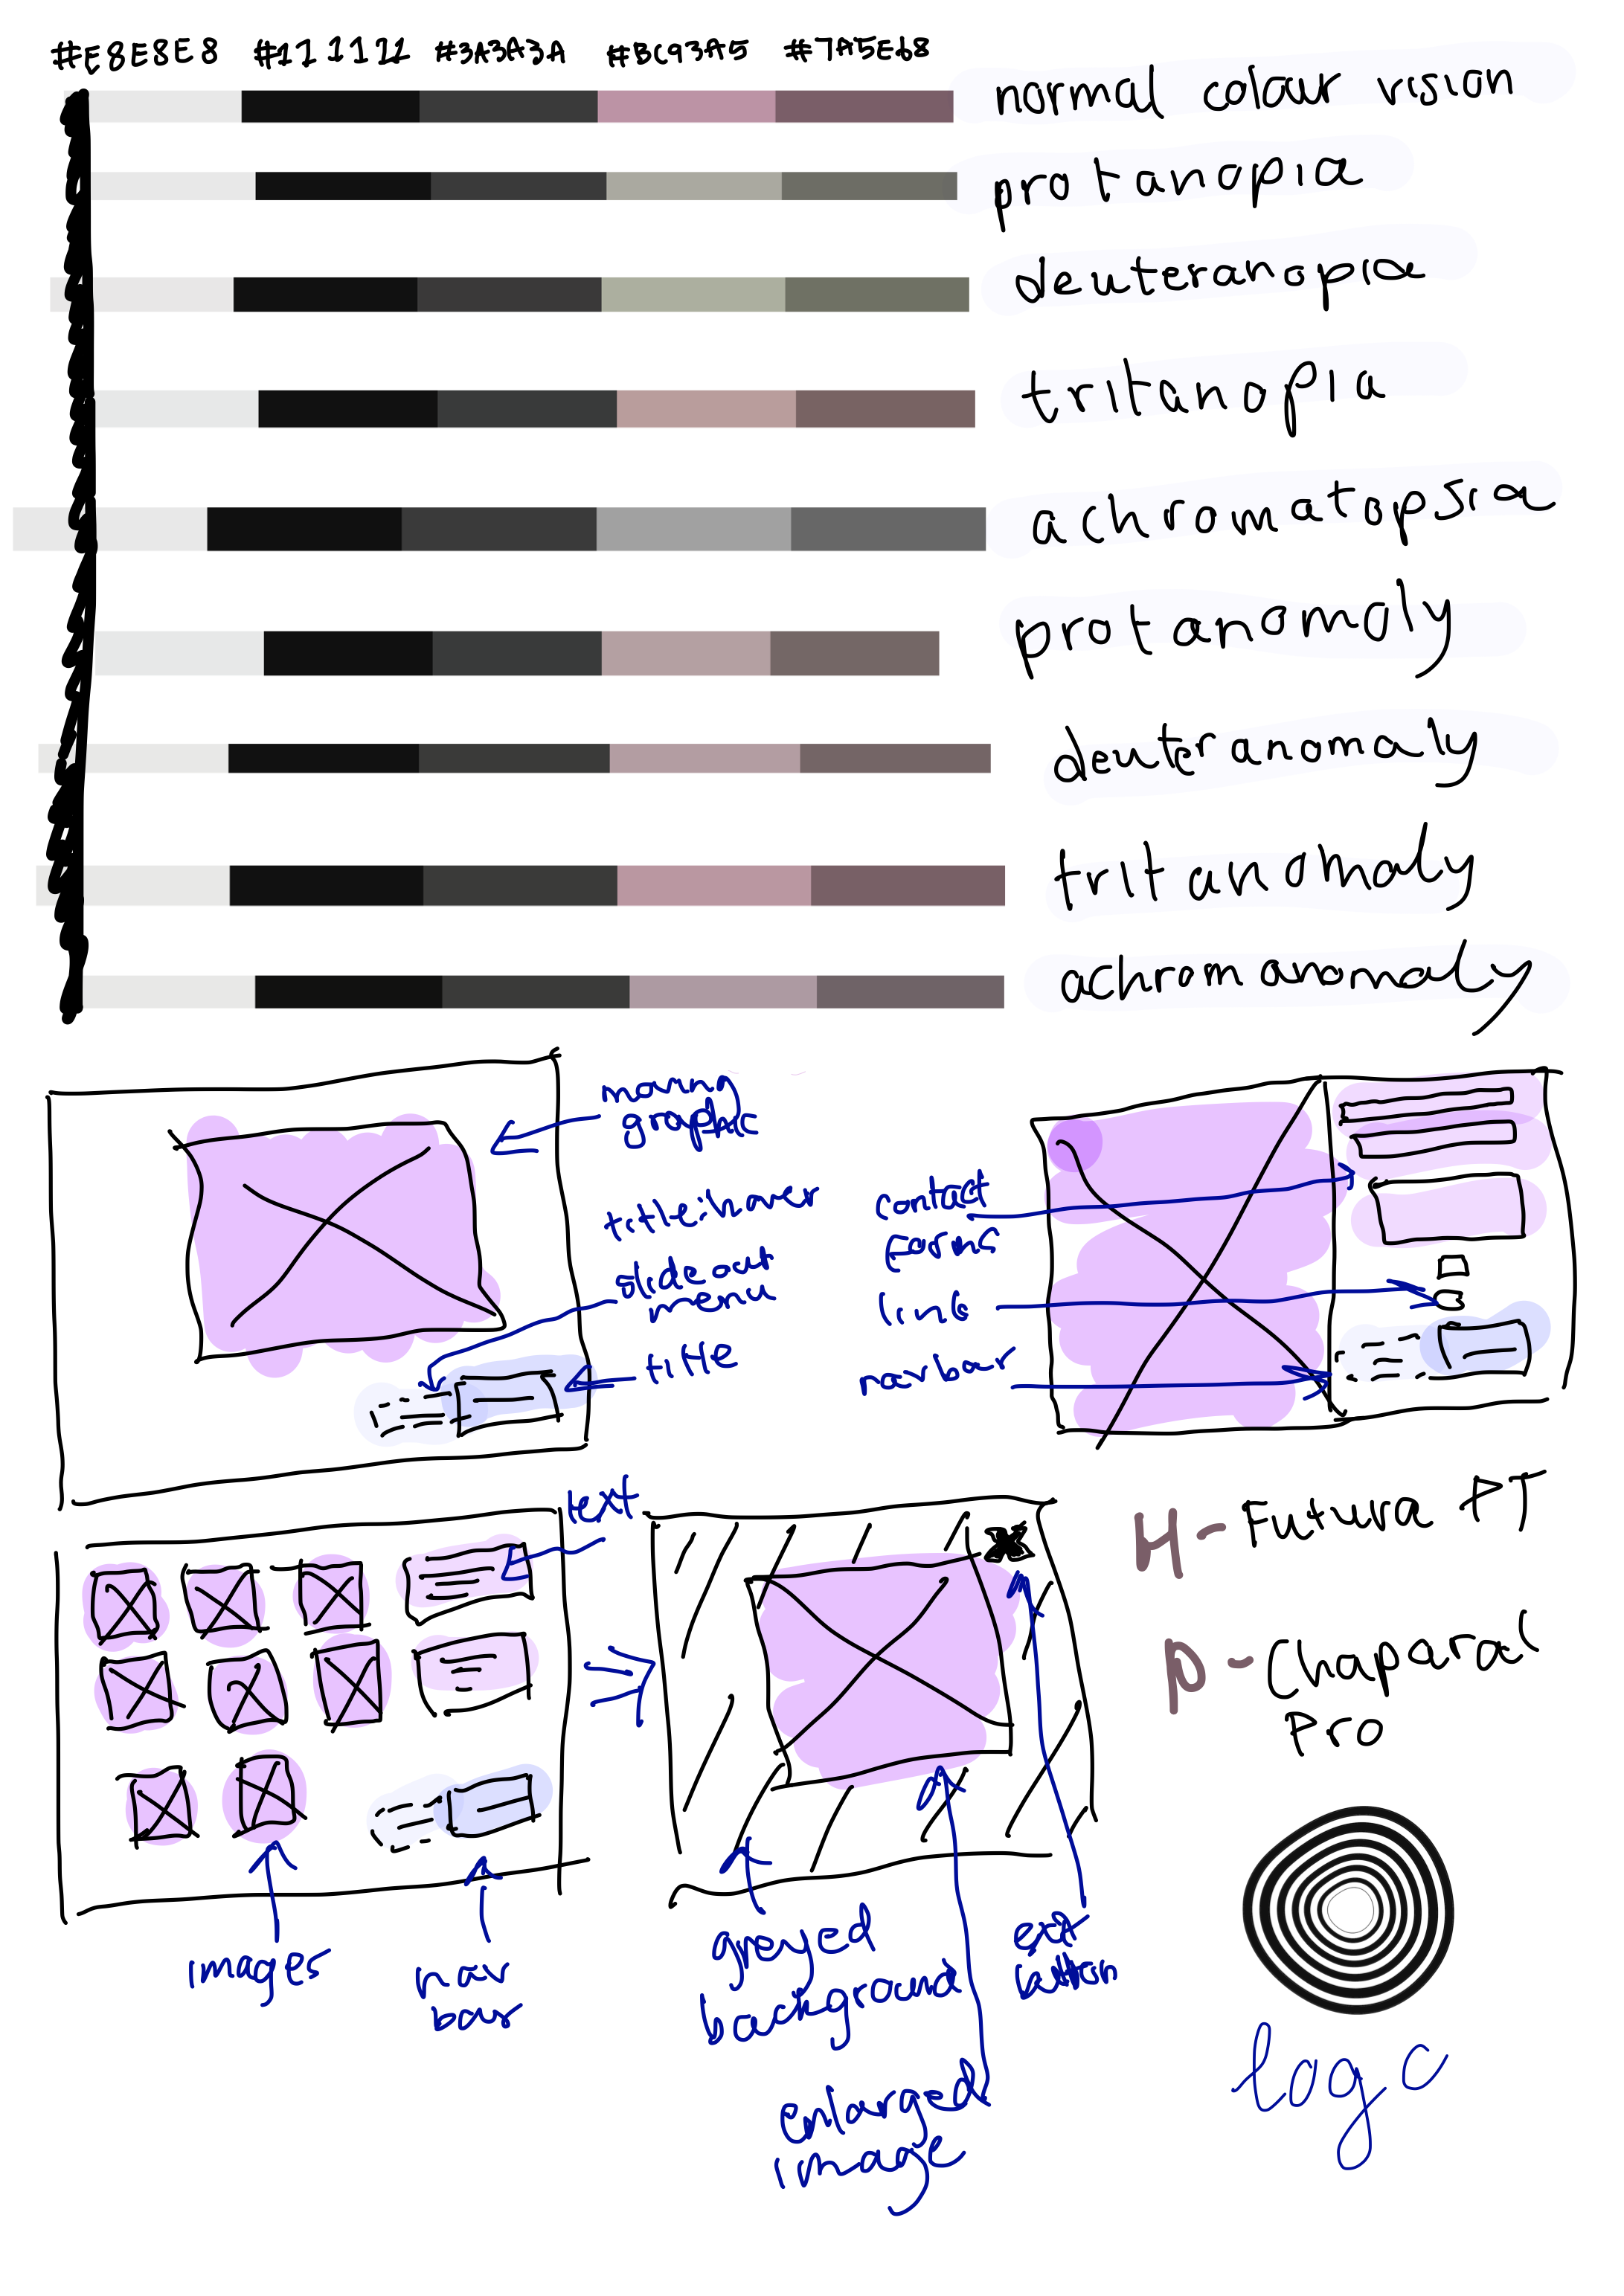 #E8E8E8 #111111 #3A3A3A #BC93A5 #7A5E68
normal colour vision
protanopia
deuteranopia
tritanopia
achromatopsia
protanomaly
deuteranomaly
tritanomaly
achromanomaly
moving
graphic
title:hover
slideout
menu
title
contact
forms
link
navbar
text
images
nav
bar
greyed
background
enlarged
image
exit
button
H - Futura PT
p - Chaparal
Pro
logo